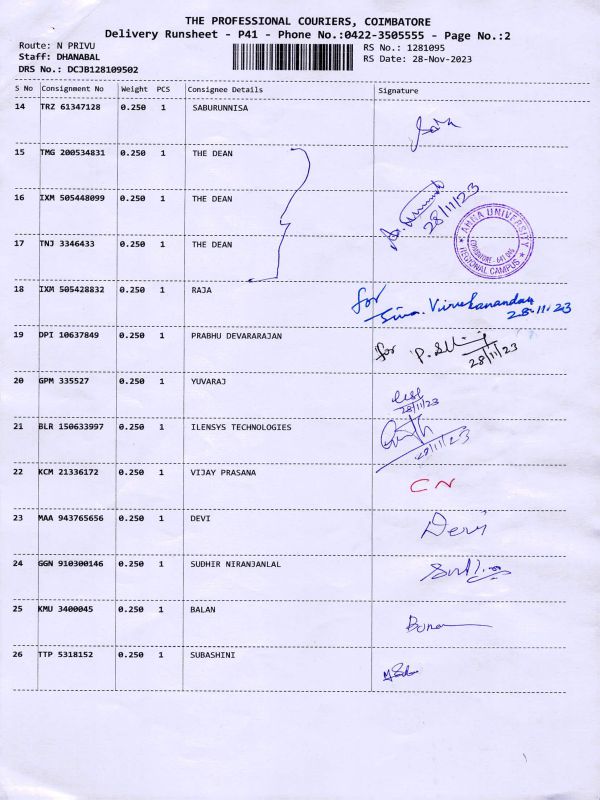 THE PROFESSIONAL COURIERS, COIMBATORE
Delivery Runsheet - P41 - Phone No.:0422-3505555 - Page No.:2
Route: N PRIVU RS No.: 1281095
Staff: DHANABAL RS Date: 28-Nov-2023
DRS No.: DCJB128109502
S No Consignment No Weight PCS Consignee Details Signature
14 TRZ 61347128 0.250 1 SABURUNNISA
15 TMG 200534831 0.250 1 THE DEAN
16 IXM 505448099 0.250 1 THE DEAN
28/11/23
ANNA UNIVERSITY
COIMBATORE - 641 046
REGIONAL CAMPUS
17 TNJ 3346433 0.250 1 THE DEAN
18 IXM 505428832 0.250 1 RAJA for
Siva. Vivekanandan
28.11.23
19 DPI 10637849 0.250 1 PRABHU DEVARARAJAN for
28/11/23
20 GPM 335527 0.250 1 YUVARAJ
28/11/23
21 BLR 150633997 0.250 1 ILENSYS TECHNOLOGIES
28/11/23
22 KCM 21336172 0.250 1 VIJAY PRASANA CN
23 MAA 943765656 0.250 1 DEVI Devi
24 GGN 910300146 0.250 1 SUDHIR NIRANJANLAL
25 KMU 3400045 0.250 1 BALAN
26 TTP 5318152 0.250 1 SUBASHINI